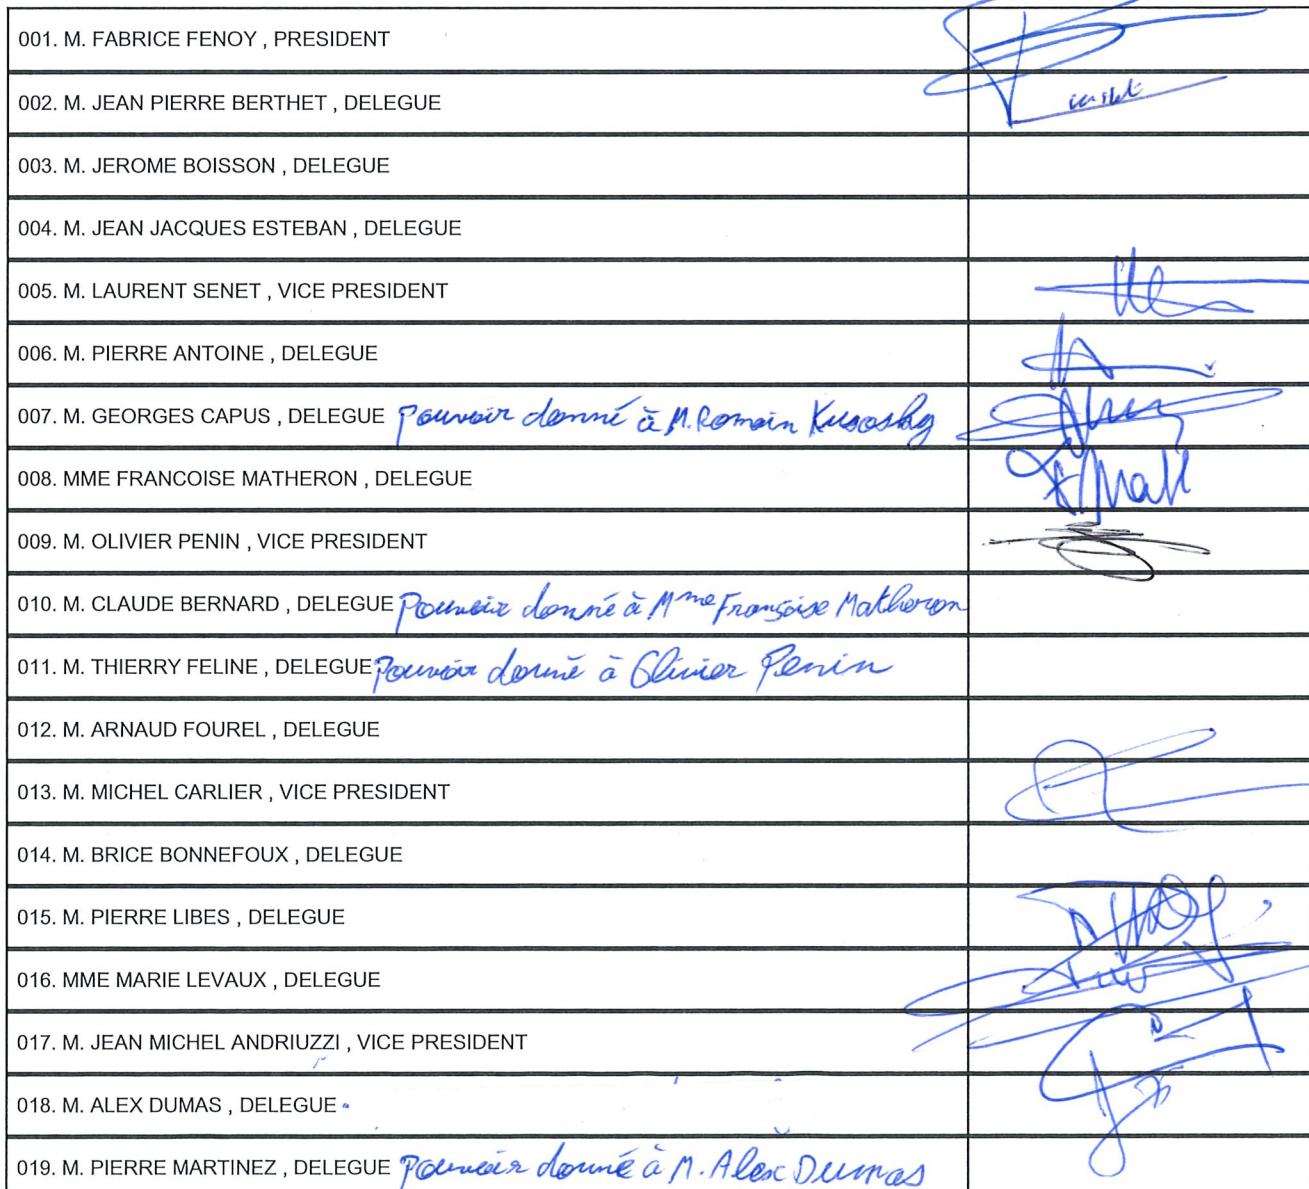 001. M. FABRICE FENOY , PRESIDENT
002. M. JEAN PIERRE BERTHET , DELEGUE
003. M. JEROME BOISSON , DELEGUE
004. M. JEAN JACQUES ESTEBAN , DELEGUE
005. M. LAURENT SENET , VICE PRESIDENT
006. M. PIERRE ANTOINE , DELEGUE
007. M. GEORGES CAPUS , DELEGUE Pouvoir donné à M. Romain
008. MME FRANCOISE MATHERON , DELEGUE
009. M. OLIVIER PENIN , VICE PRESIDENT
010. M. CLAUDE BERNARD , DELEGUE Pouvoir donné à Mme Françoise Matheron
011. M. THIERRY FELINE , DELEGUE Pouvoir donné à Olivier Penin
012. M. ARNAUD FOUREL , DELEGUE
013. M. MICHEL CARLIER , VICE PRESIDENT
014. M. BRICE BONNEFOUX , DELEGUE
015. M. PIERRE LIBES , DELEGUE
016. MME MARIE LEVAUX , DELEGUE
017. M. JEAN MICHEL ANDRIUZZI , VICE PRESIDENT
018. M. ALEX DUMAS , DELEGUE
019. M. PIERRE MARTINEZ , DELEGUE Pouvoir donné à M. Alex Dumas